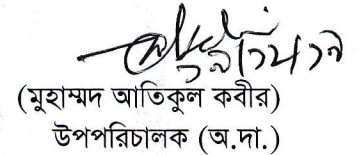 (মুহাম্মদ আতিকুল কবীর)
উপপরিচালক (অ.দা.)